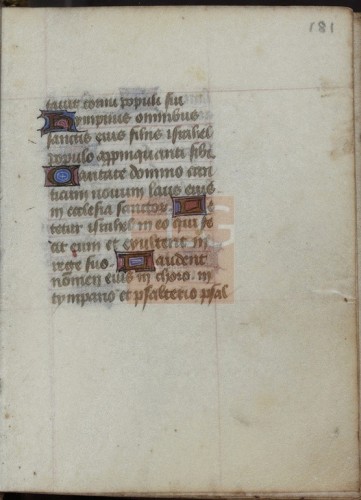 181
tauit cornu populi sui
Hympnus omnibus
sanctis eius filiis israhel
populo appinquanti sibi
Cantate domino can
ticum nouum laus eius
in ecclesia sanctor. Le
tetur israhel in eo qui fe
cit eum et exultent in
rege suo. Laudent
nomen eius in choro. in
tympano et psalterio psal